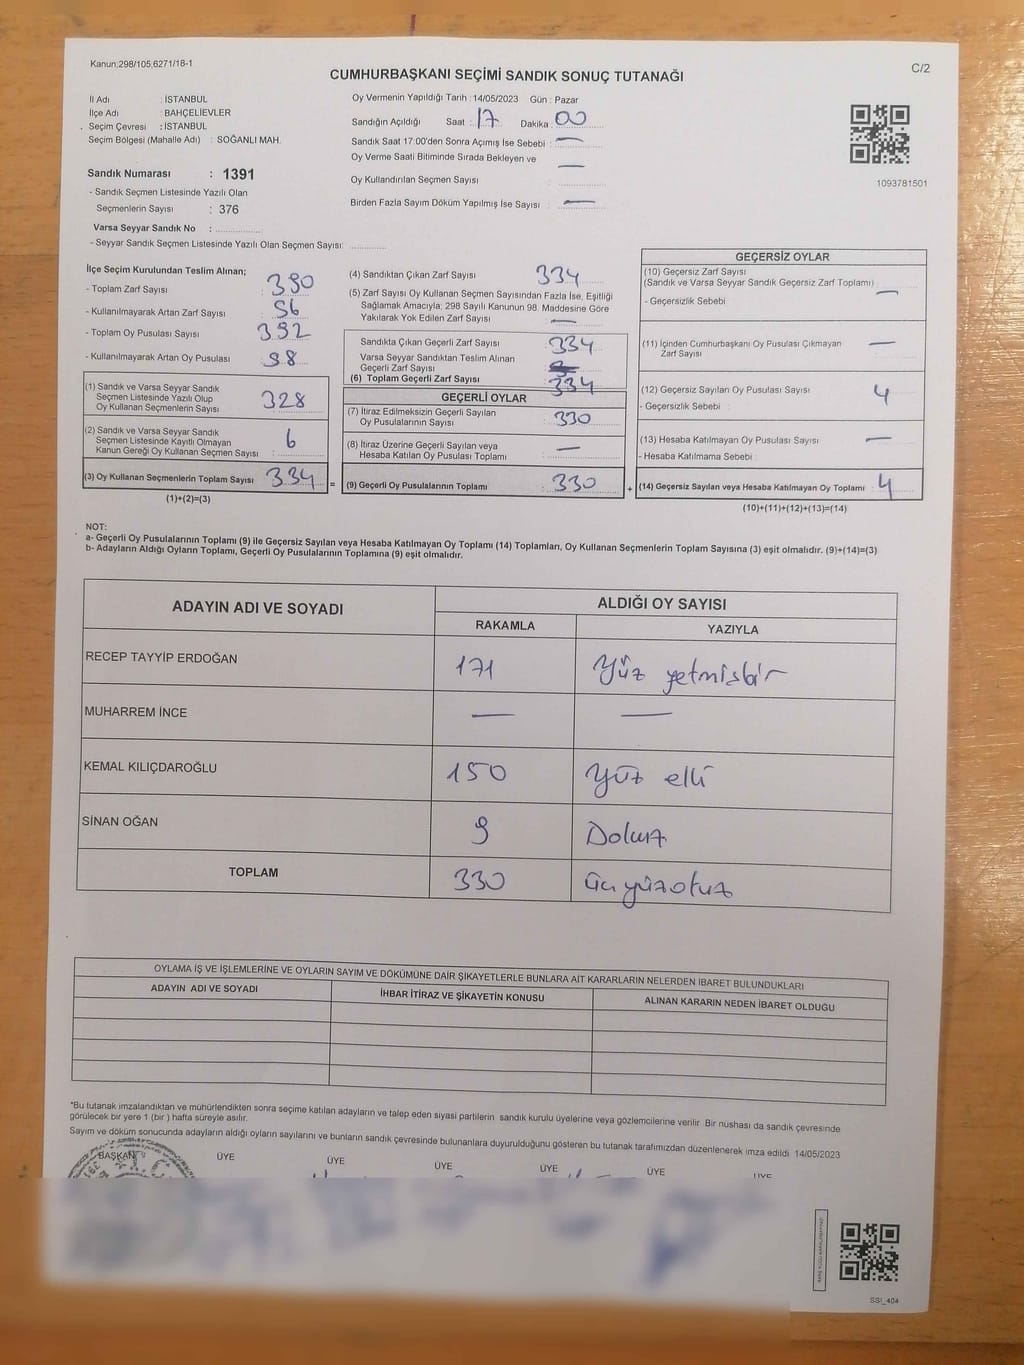 Kanun;298/105,6271/18-1
C/2
CUMHURBAŞKANI SEÇİMİ SANDIK SONUÇ TUTANAĞI
İl Adı : İSTANBUL
İlçe Adı : BAHÇELİEVLER
Seçim Çevresi : İSTANBUL
Seçim Bölgesi (Mahalle Adı) : SOĞANLI MAH.
Sandık Numarası : 1391
- Sandık Seçmen Listesinde Yazılı Olan
Seçmenlerin Sayısı : 376
Varsa Seyyar Sandık No :
- Seyyar Sandık Seçmen Listesinde Yazılı Olan Seçmen Sayısı:
Oy Vermenin Yapıldığı Tarih : 14/05/2023 Gün : Pazar
Sandığın Açıldığı Saat : 17 Dakika : 00
Sandık Saat 17:00'den Sonra Açımış İse Sebebi : —
Oy Verme Saati Bitiminde Sırada Bekleyen ve —
Oy Kullandırılan Seçmen Sayısı :
Birden Fazla Sayım Döküm Yapılmış İse Sayısı : —
1093781501
İlçe Seçim Kurulundan Teslim Alınan;
- Toplam Zarf Sayısı : 390
- Kullanılmayarak Artan Zarf Sayısı : 56
- Toplam Oy Pusulası Sayısı : 392
- Kullanılmayarak Artan Oy Pusulası : 98
(1) Sandık ve Varsa Seyyar Sandık
Seçmen Listesinde Yazılı Olup
Oy Kullanan Seçmenlerin Sayısı : 328
(2) Sandık ve Varsa Seyyar Sandık
Seçmen Listesinde Kayıtlı Olmayan
Kanun Gereği Oy Kullanan Seçmen Sayısı : 6
(3) Oy Kullanan Seçmenlerin Toplam Sayısı : 334
(1)+(2)=(3)
=
(4) Sandıktan Çıkan Zarf Sayısı : 334
(5) Zarf Sayısı Oy Kullanan Seçmen Sayısından Fazla İse, Eşitliği
Sağlamak Amacıyla, 298 Sayılı Kanunun 98. Maddesine Göre
Yakılarak Yok Edilen Zarf Sayısı : —
Sandıkta Çıkan Geçerli Zarf Sayısı : 334
Varsa Seyyar Sandıktan Teslim Alınan
Geçerli Zarf Sayısı :
(6) Toplam Geçerli Zarf Sayısı : 334
GEÇERLİ OYLAR
(7) İtiraz Edilmeksizin Geçerli Sayılan
Oy Pusulalarının Sayısı : 330
(8) İtiraz Üzerine Geçerli Sayılan veya
Hesaba Katılan Oy Pusulası Toplamı : —
(9) Geçerli Oy Pusulalarının Toplamı : 330
+
GEÇERSİZ OYLAR
(10) Geçersiz Zarf Sayısı
(Sandık ve Varsa Seyyar Sandık Geçersiz Zarf Toplamı) : —
- Geçersizlik Sebebi :
(11) İçinden Cumhurbaşkanı Oy Pusulası Çıkmayan
Zarf Sayısı : —
(12) Geçersiz Sayılan Oy Pusulası Sayısı : 4
- Geçersizlik Sebebi :
(13) Hesaba Katılmayan Oy Pusulası Sayısı : —
- Hesaba Katılmama Sebebi :
(14) Geçersiz Sayılan veya Hesaba Katılmayan Oy Toplamı : 4
(10)+(11)+(12)+(13)=(14)
NOT:
a- Geçerli Oy Pusulalarının Toplamı (9) ile Geçersiz Sayılan veya Hesaba Katılmayan Oy Toplamı (14) Toplamları, Oy Kullanan Seçmenlerin Toplam Sayısına (3) eşit olmalıdır. (9)+(14)=(3)
b- Adayların Aldığı Oyların Toplamı, Geçerli Oy Pusulalarının Toplamına (9) eşit olmalıdır.
ADAYIN ADI VE SOYADI
ALDIĞI OY SAYISI
RAKAMLA YAZIYLA
RECEP TAYYİP ERDOĞAN 171 Yüz yetmişbir
MUHARREM İNCE — —
KEMAL KILIÇDAROĞLU 150 Yüz elli
SİNAN OĞAN 9 Dokuz
TOPLAM 330 üçyüzotuz
OYLAMA İŞ VE İŞLEMLERİNE VE OYLARIN SAYIM VE DÖKÜMÜNE DAİR ŞİKAYETLERLE BUNLARA AİT KARARLARIN NELERDEN İBARET BULUNDUKLARI
ADAYIN ADI VE SOYADI İHBAR İTİRAZ VE ŞİKAYETİN KONUSU ALINAN KARARIN NEDEN İBARET OLDUĞU
*Bu tutanak imzalandıktan ve mühürlendikten sonra seçime katılan adayların ve talep eden siyasi partilerin sandık kurulu üyelerine veya gözlemcilerine verilir. Bir nüshası da sandık çevresinde
görülecek bir yere 1 (bir ) hafta süreyle asılır.
Sayım ve döküm sonucunda adayların aldığı oyların sayılarını ve bunların sandık çevresinde bulunanlara duyurulduğunu gösteren bu tutanak tarafımızdan düzenlenerek imza edildi. 14/05/2023
BAŞKAN ÜYE ÜYE ÜYE ÜYE ÜYE ÜYE
SSI_404